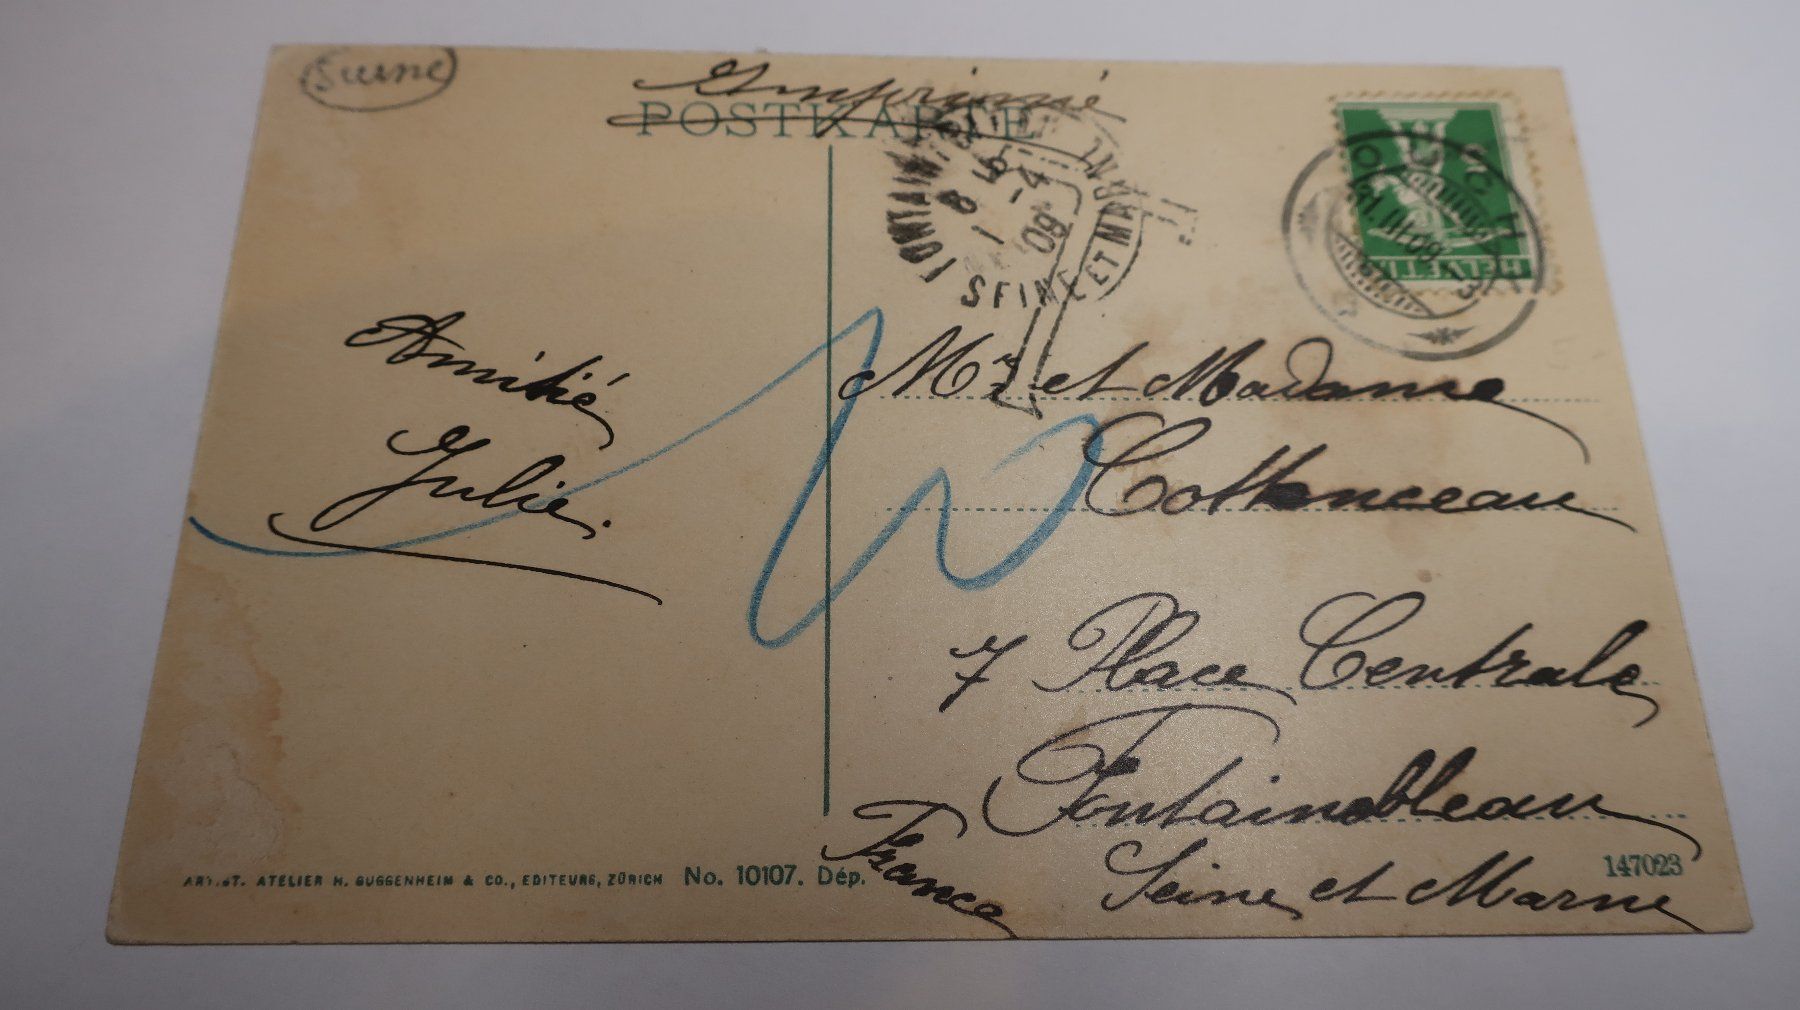 Suisse
Imprimé
POSTKARTE
HELVETIA
31.III.09
FONTAIN
SEINE ET MARNE
1 -4
09
Amitié
Julie.
Mr et Madame
Cottenceau
7 Place Centrale
Fontainebleau
Seine et Marne
France
ARTIST. ATELIER H. GUGGENHEIM & CO., EDITEURS, ZÜRICH No. 10107. Dép.
147023